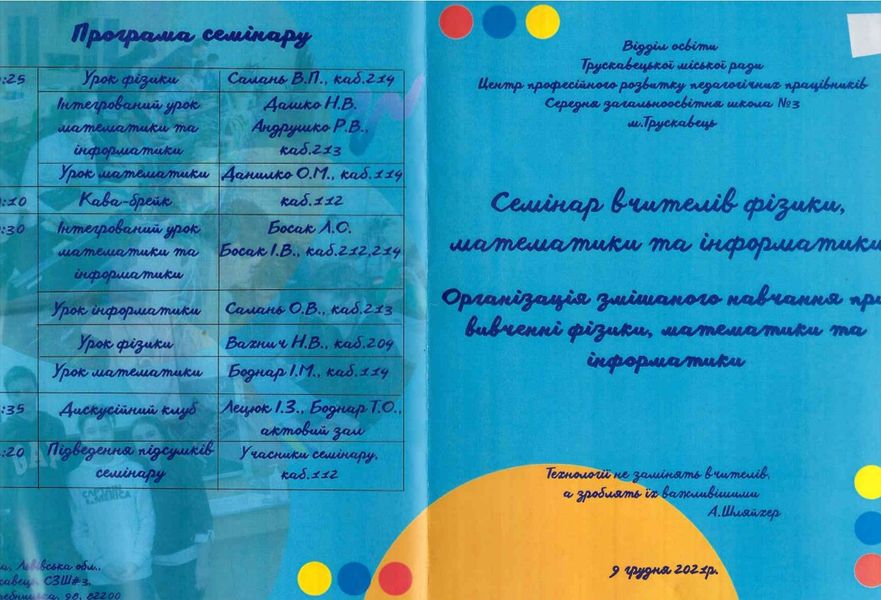 Програма семінару
:25 Урок фізики Салань В.П., каб.214
Інтегрований урок Дашко Н.В.
математики та Андрушко Р.В.,
інформатики каб.213
Урок математики Данилко О.М., каб.119
:10 Кава-брейк каб.112
:30 Інтегрований урок Босак Л.О.
математики та Босак І.В., каб.212,214
інформатики
Урок інформатики Салань О.В., каб.213
Урок фізики Вахнич Н.В., каб.209
Урок математики Боднар І.М., каб.119
:35 Дискусійний клуб Лецюк І.З., Боднар Т.О.,
актовий зал
:20 Підведення підсумків Учасники семінару,
семінару каб.112
Львівська обл.,
СЗШ#3,
98, 82200
Відділ освіти
Трускавецької міської ради
Центр професійного розвитку педагогічних працівників
Середня загальноосвітня школа №3
м.Трускавець
Семінар вчителів фізики,
математики та інформатики
Організація змішаного навчання при
вивченні фізики, математики та
інформатики
Технології не замінять вчителів,
а зроблять їх важливішими
А.Шляйхер
9 грудня 2021р.